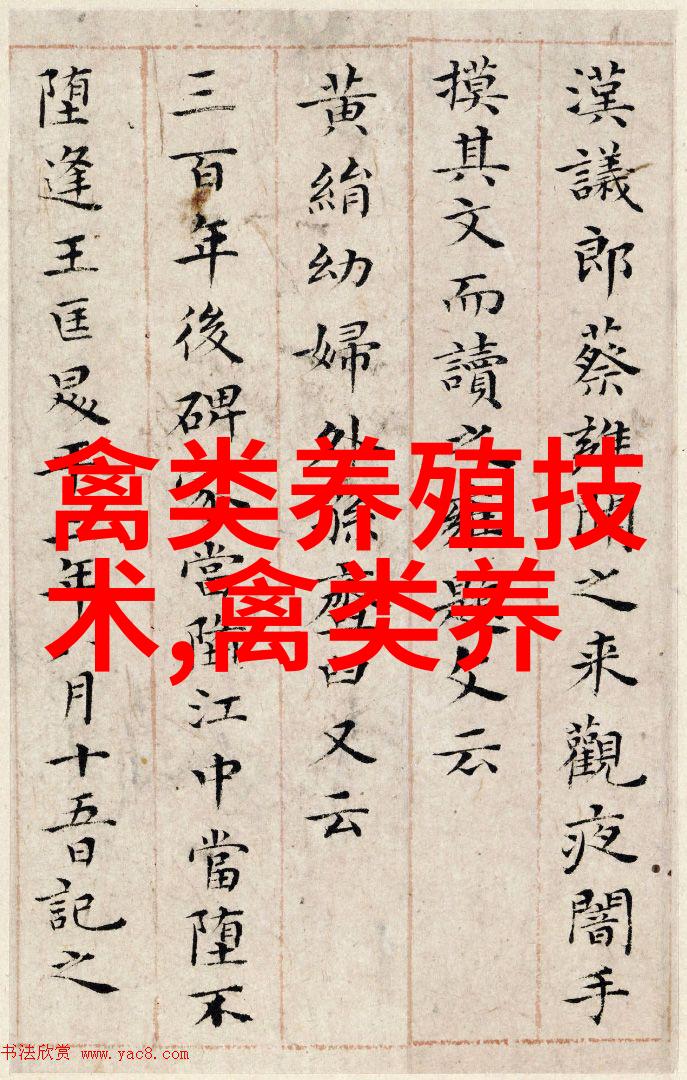 漢議郎蔡雝聞之来觀夜闇手
摸其文而讀之雝題文云
黄絹幼婦外孫臼又云
三百年後碑冢當堕江中當堕不
堕逢王匡平年月十五日記之
禽类养殖技
术,禽类养
书法欣赏 www.yac8.com